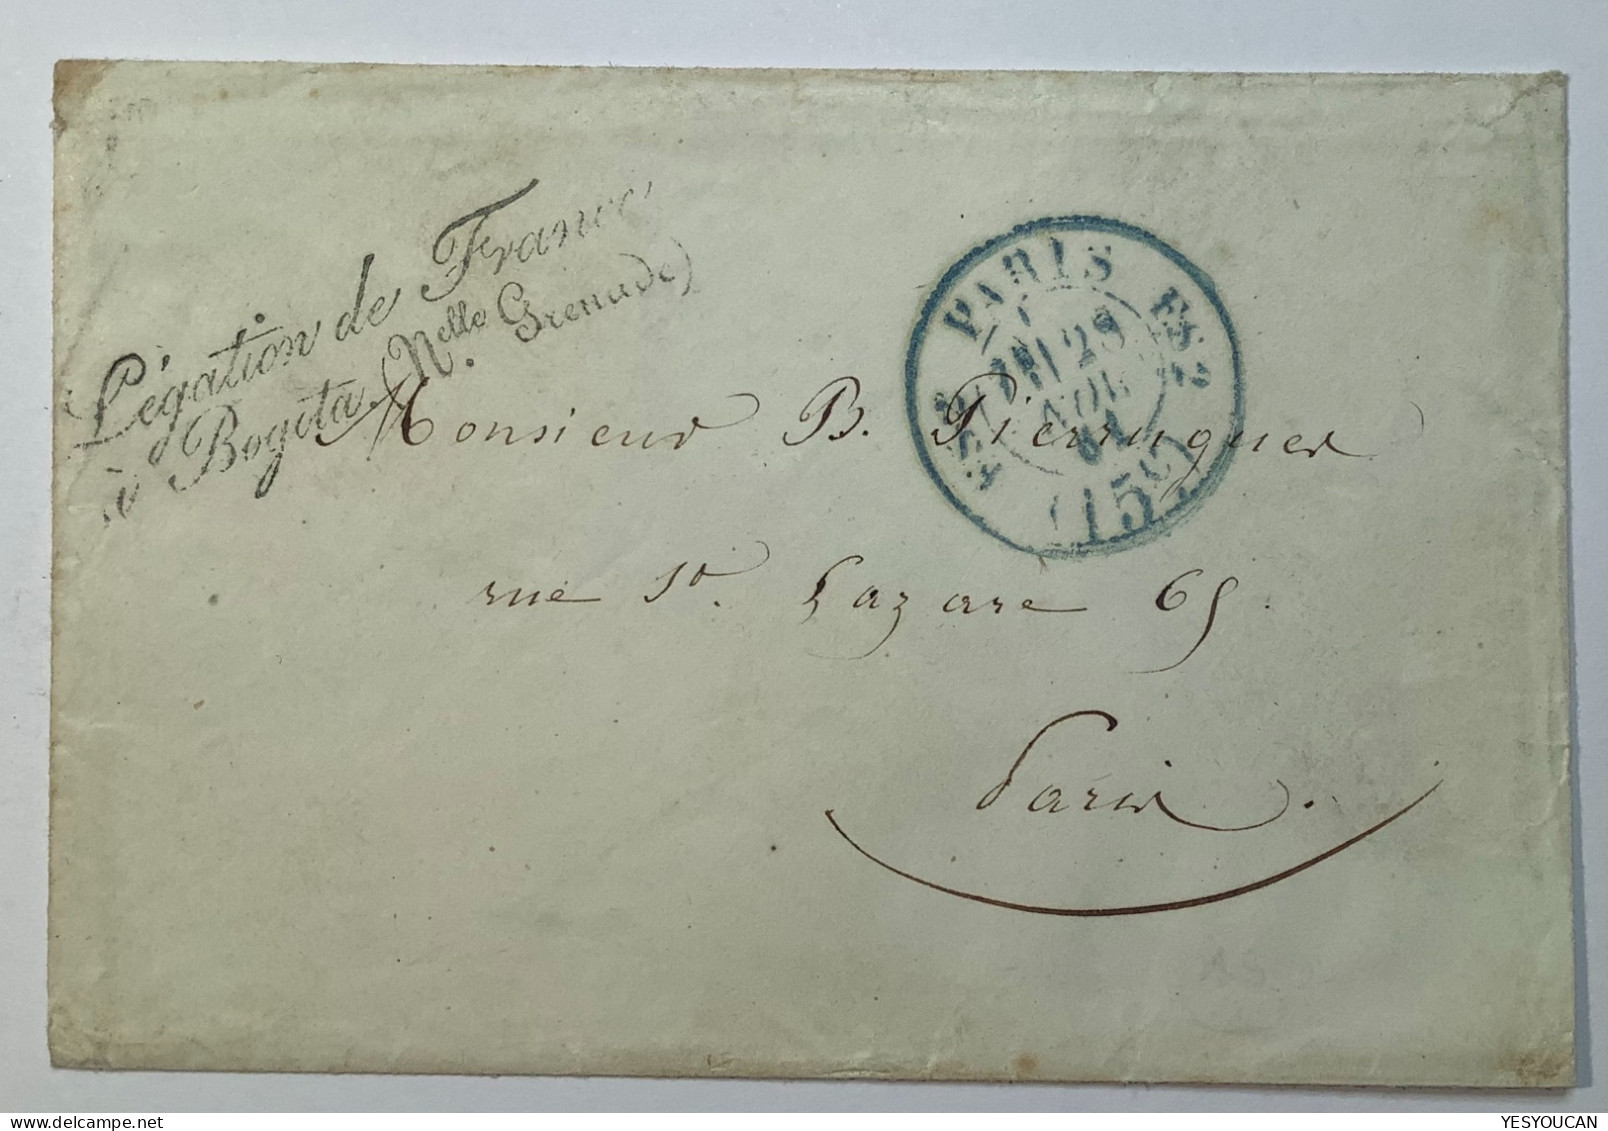 Légation de France
à Bogota (Nelle Grenade)
PARIS
29
AOU
(15C)
Monsieur B. Pierrugues
rue St. Lazare 65.
Paris.
YESYOUCAN